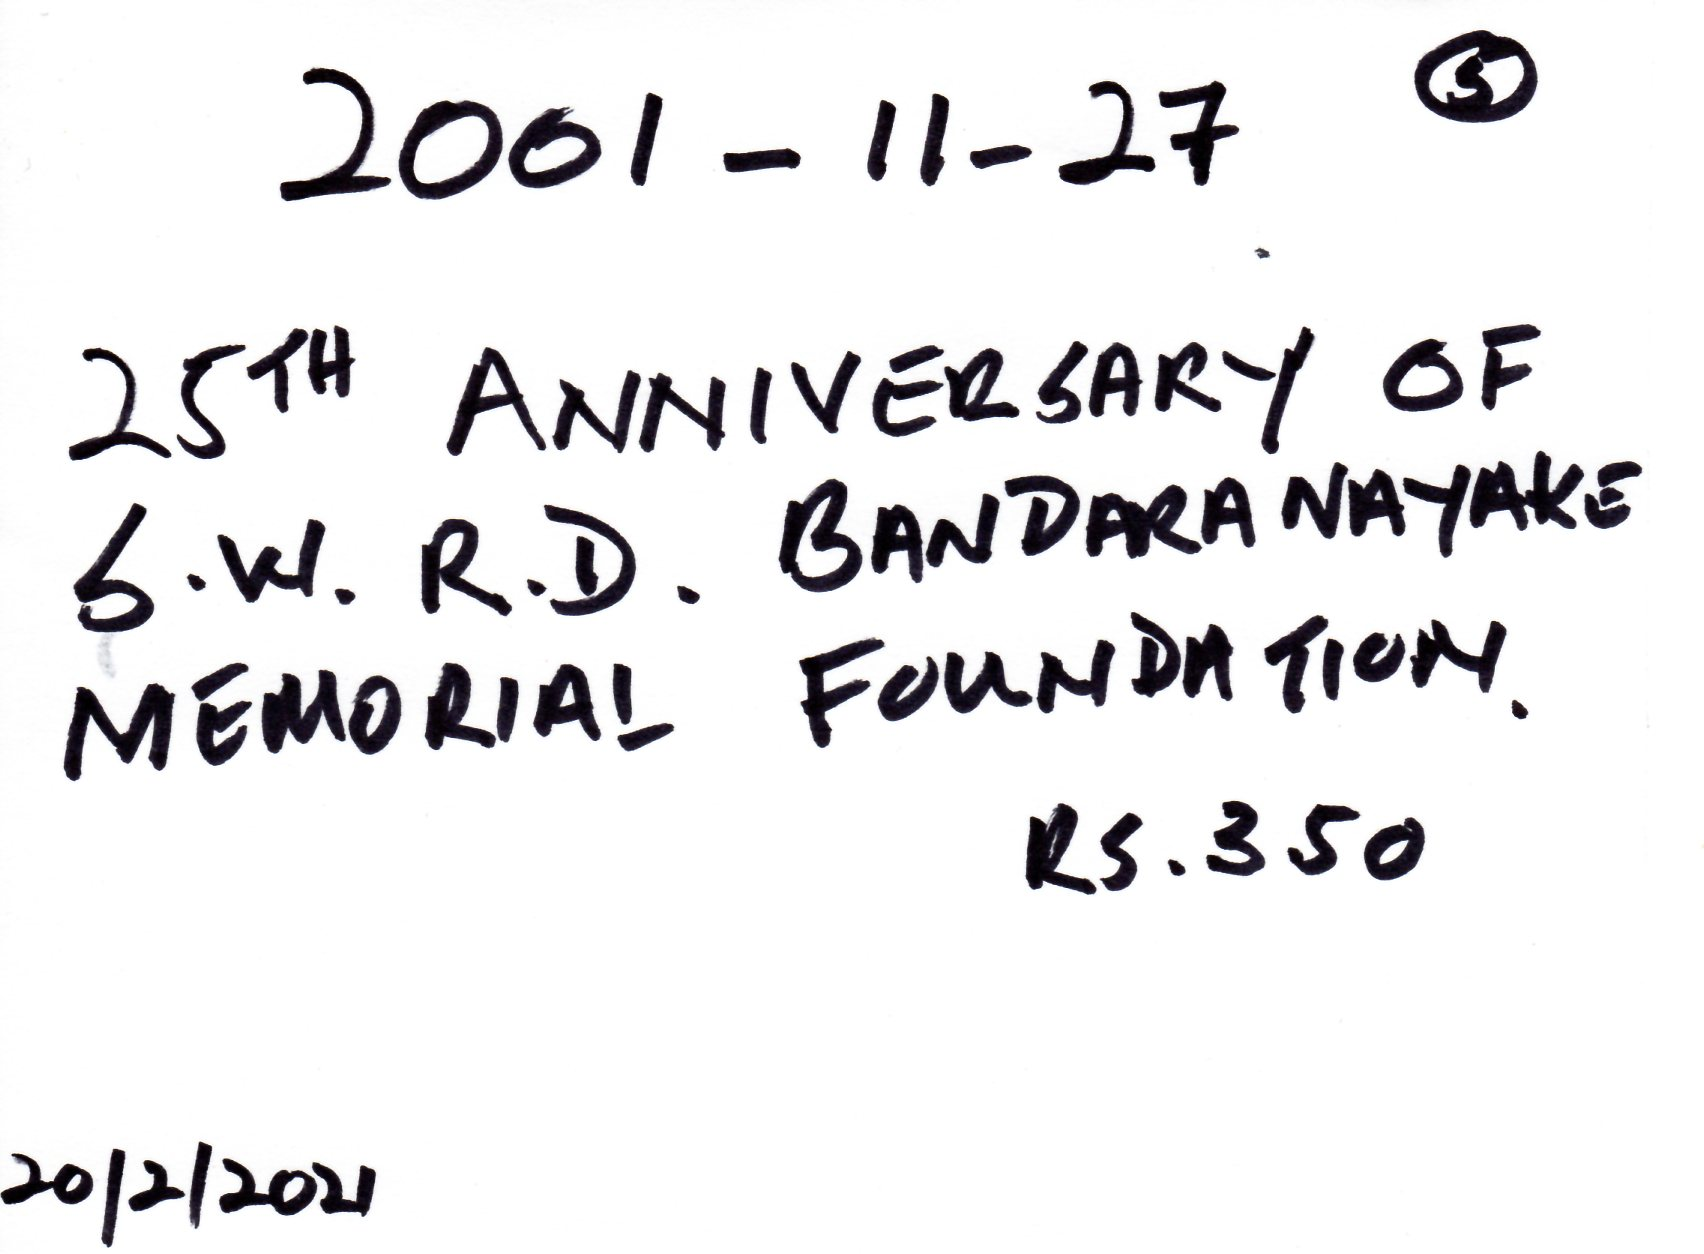 5
2001 - 11 - 27
25TH ANNIVERSARY OF
S.W.R.D. BANDARANAYAKE
MEMORIAL FOUNDATION.
RS.350
20/2/2021